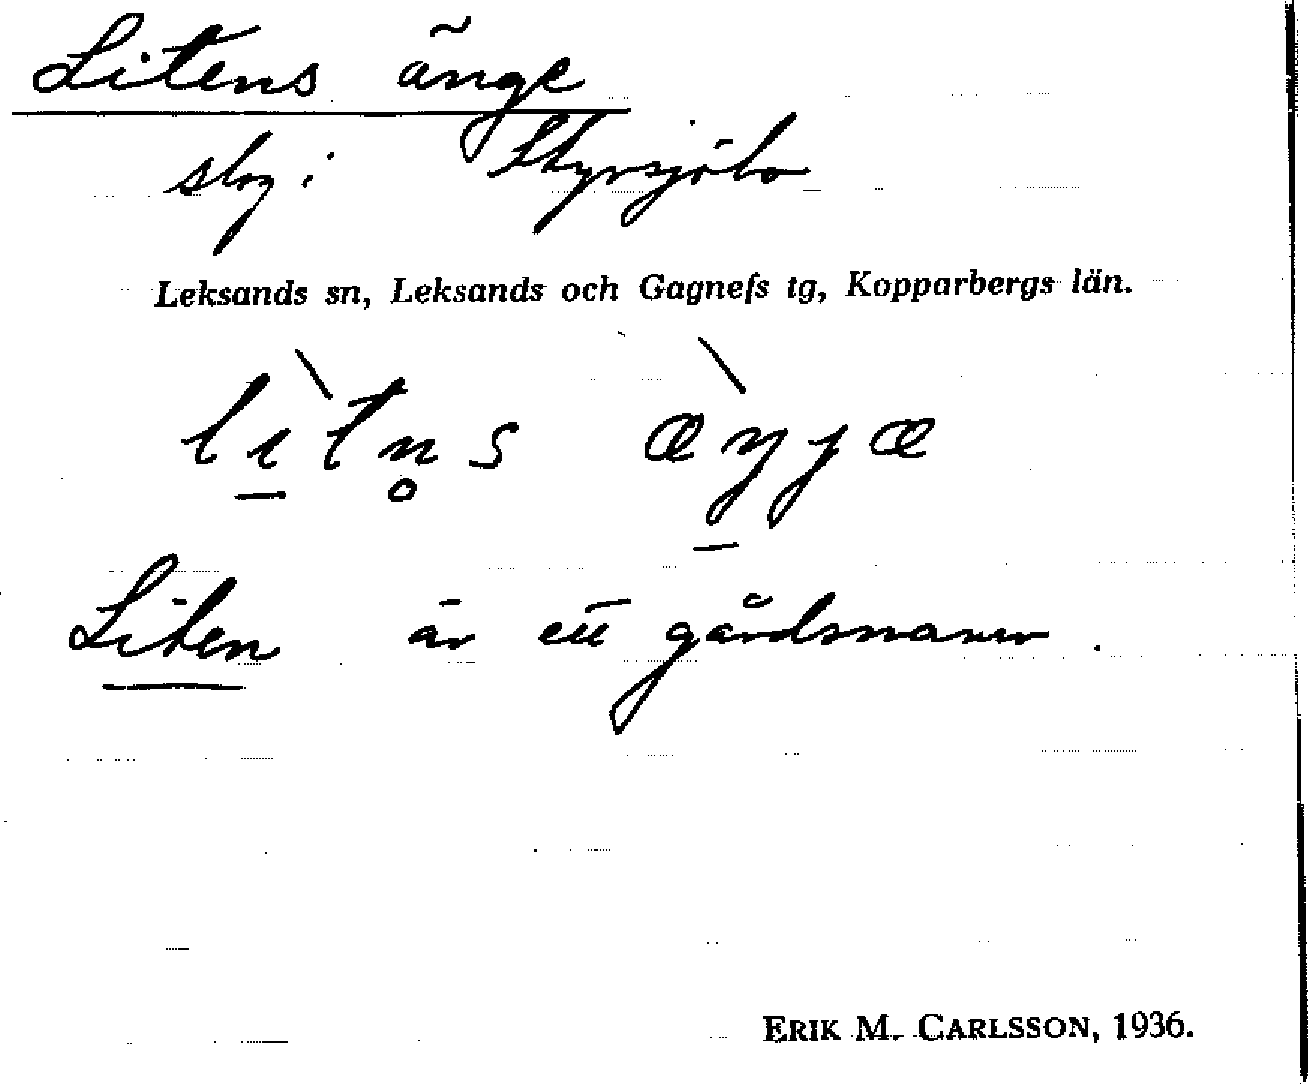 Litens änge
slog i Styrsjöbo
Leksands sn, Leksands och Gagnefs tg, Kopparbergs län.
lìtn̥s æ̀ŋjæ
Liten är ett gårdsnamn.
ERIK M. CARLSSON, 1936.